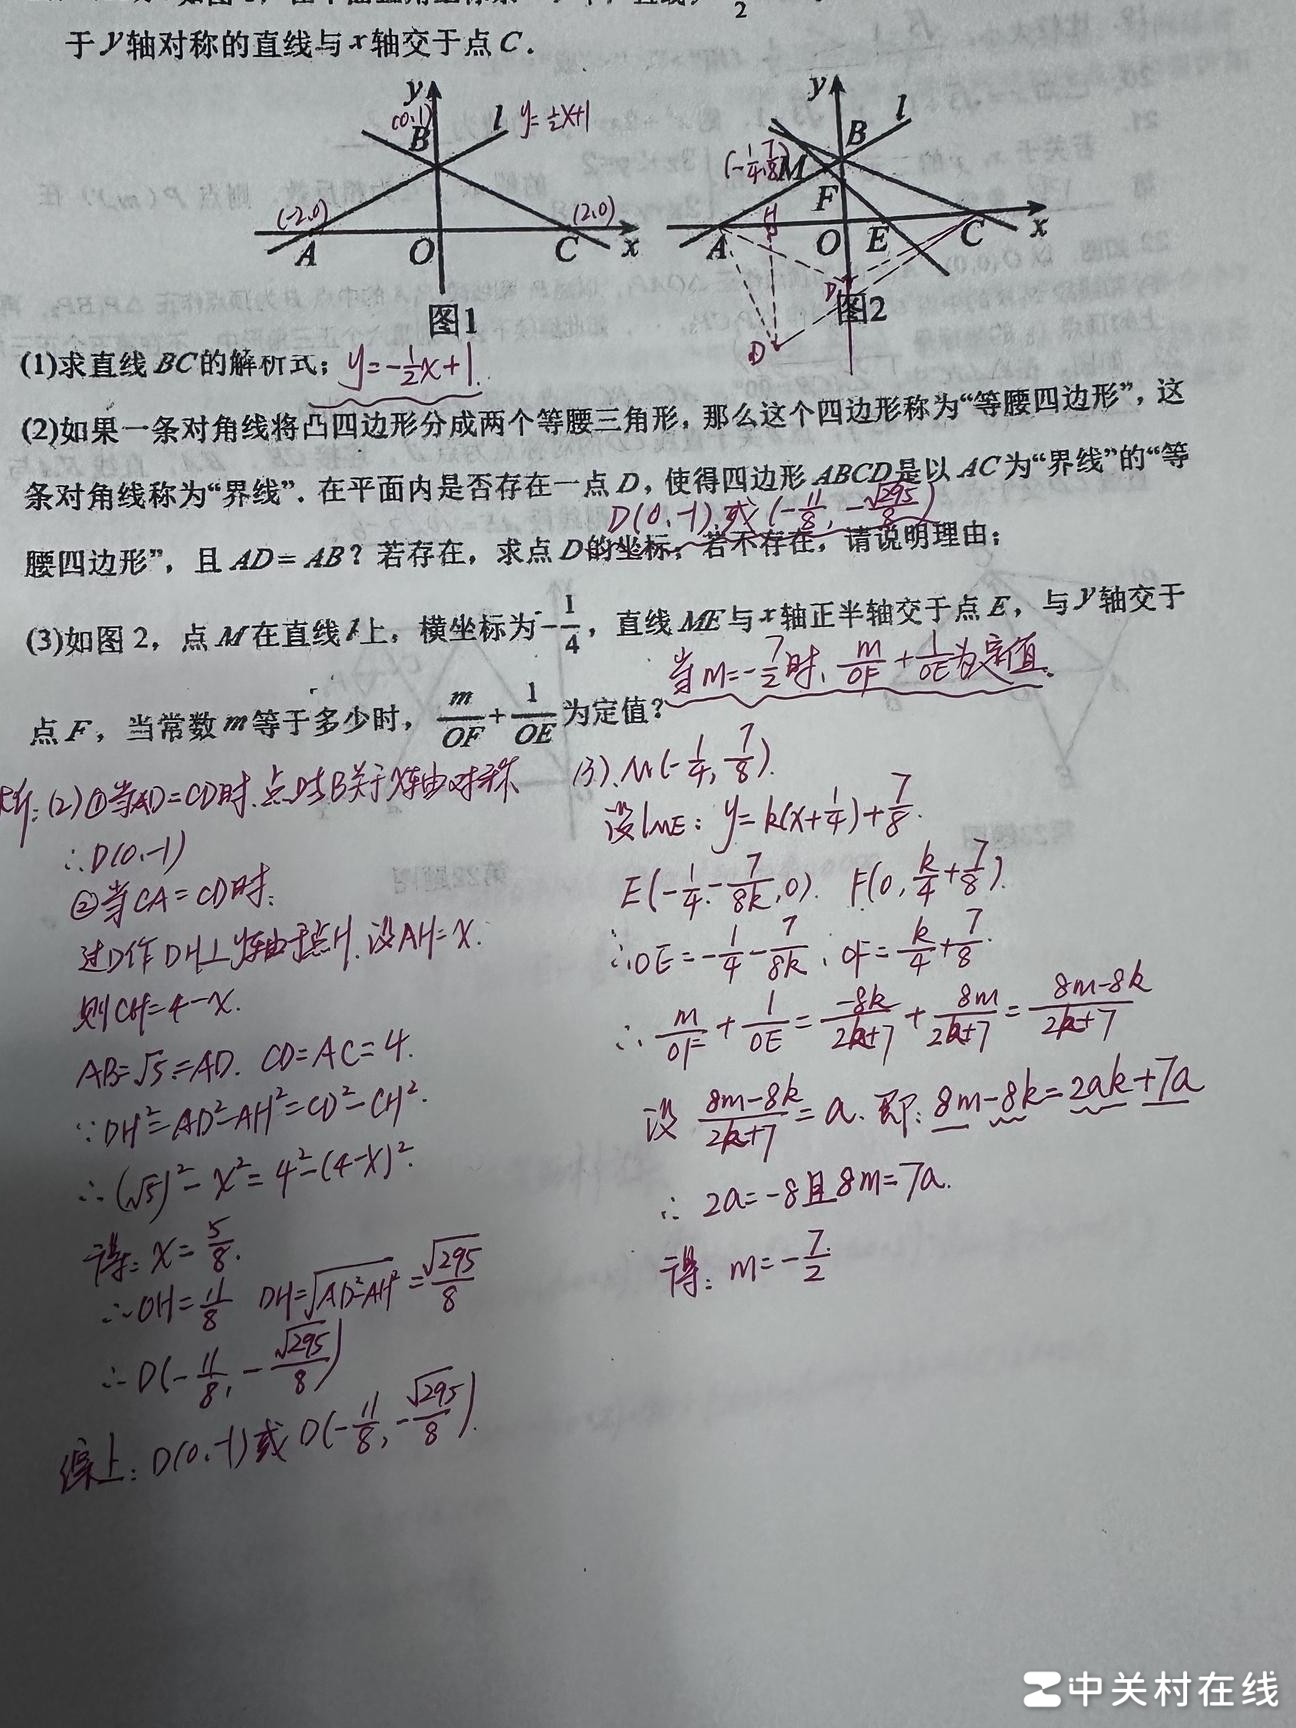 于y轴对称的直线与x轴交于点C.
y
(0,1)
B
l
y=½x+1
(-2,0)
(2,0)
A
O
C
x
图1
y
B
l
(-1/4, 7/8)
M
F
H
A
O
E
C
x
D
D
图2
(1)求直线BC的解析式; y=-½x+1.
(2)如果一条对角线将凸四边形分成两个等腰三角形,那么这个四边形称为“等腰四边形”,这
条对角线称为“界线”.在平面内是否存在一点D,使得四边形ABCD是以AC为“界线”的“等
D(0,-1)或(-11/8, -√295/8)
腰四边形”,且AD=AB?若存在,求点D的坐标;若不存在,请说明理由;
(3)如图2,点M在直线l上,横坐标为-1/4,直线ME与x轴正半轴交于点E,与y轴交于
当m=-7/2时, m/OF+1/OE为定值.
点F,当常数m等于多少时, m/OF+1/OE为定值?
(2)①当AD=CD时.点D与B关于x轴对称
∴D(0,-1)
②当CA=CD时:
过D作DH⊥y轴于点H.设AH=x.
则CH=4-x.
AB=√5=AD. CD=AC=4.
∵DH²=AD²-AH²=CD²-CH².
∴(√5)²-x²=4²-(4-x)².
得: x=5/8.
∴OH=11/8 DH=√(AD²-AH²)=√295/8
∴D(-11/8, -√295/8)
综上: D(0,-1)或D(-11/8, -√295/8).
(3). M(-1/4, 7/8).
设lME: y=k(x+1/4)+7/8.
E(-1/4-7/8k, 0). F(0, k/4+7/8).
∴OE=-1/4-7/8k, OF=k/4+7/8.
∴ m/OF+1/OE=-8k/2k+7+8m/2k+7=8m-8k/2k+7
设 8m-8k/2k+7=a. 即: 8m-8k=2ak+7a
∴ 2a=-8且8m=7a.
得: m=-7/2
中关村在线